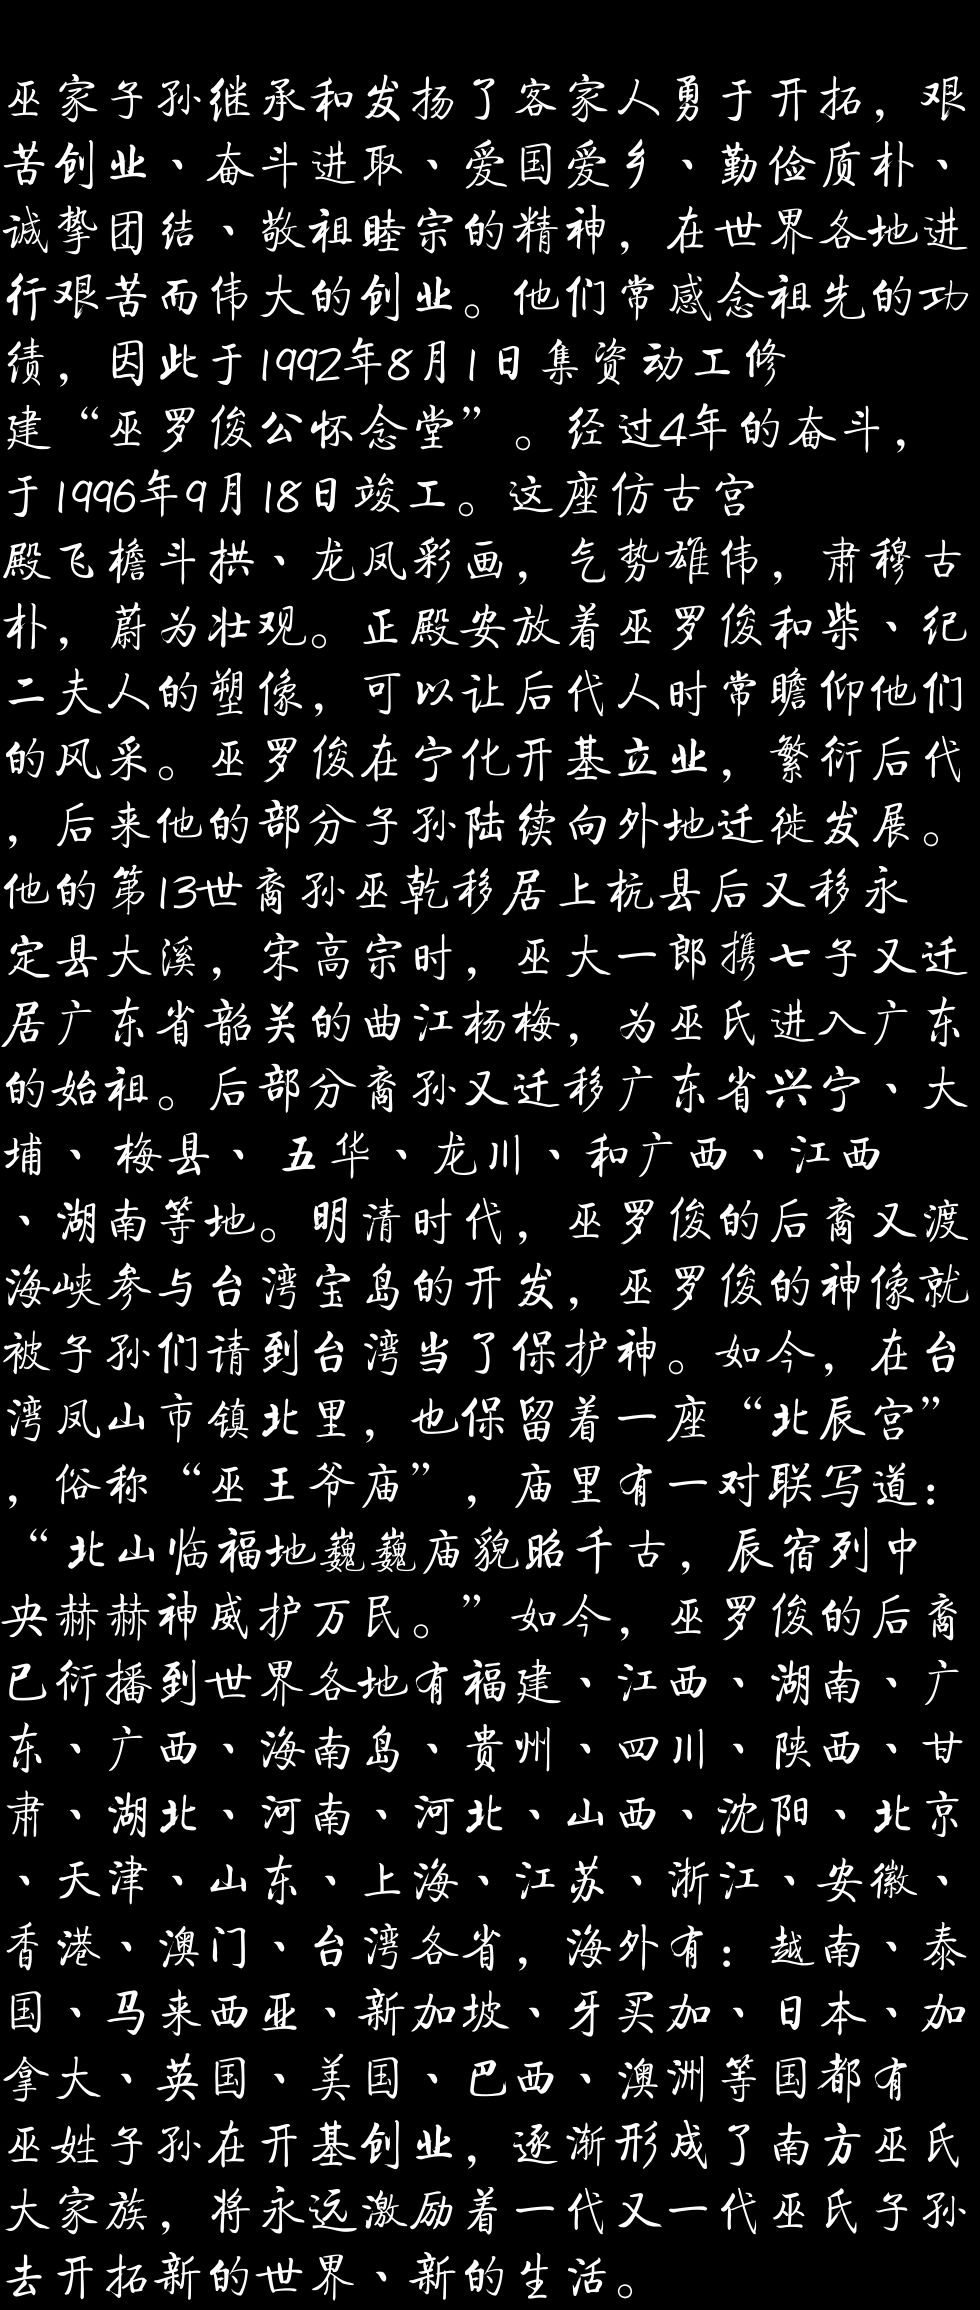 巫家子孙继承和发扬了客家人勇于开拓，艰
苦创业、奋斗进取、爱国爱乡、勤俭质朴、
诚挚团结、敬祖睦宗的精神，在世界各地进
行艰苦而伟大的创业。他们常感念祖先的功
绩，因此于1992年8月1日集资动工修
建“巫罗俊公怀念堂”。经过4年的奋斗，
于1996年9月18日竣工。这座仿古宫
殿飞檐斗拱、龙凤彩画，气势雄伟，肃穆古
朴，蔚为壮观。正殿安放着巫罗俊和柴、纪
二夫人的塑像，可以让后代人时常瞻仰他们
的风采。巫罗俊在宁化开基立业，繁衍后代
，后来他的部分子孙陆续向外地迁徙发展。
他的第13世裔孙巫乾移居上杭县后又移永
定县大溪，宋高宗时，巫大一郎携七子又迁
居广东省韶关的曲江杨梅，为巫氏进入广东
的始祖。后部分裔孙又迁移广东省兴宁、大
埔、梅县、五华、龙川、和广西、江西
、湖南等地。明清时代，巫罗俊的后裔又渡
海峡参与台湾宝岛的开发，巫罗俊的神像就
被子孙们请到台湾当了保护神。如今，在台
湾凤山市镇北里，也保留着一座“北辰宫”
，俗称“巫王爷庙”，庙里有一对联写道：
“北山临福地巍巍庙貌昭千古，辰宿列中
央赫赫神威护万民。”如今，巫罗俊的后裔
已衍播到世界各地有福建、江西、湖南、广
东、广西、海南岛、贵州、四川、陕西、甘
肃、湖北、河南、河北、山西、沈阳、北京
、天津、山东、上海、江苏、浙江、安徽、
香港、澳门、台湾各省，海外有：越南、泰
国、马来西亚、新加坡、牙买加、日本、加
拿大、英国、美国、巴西、澳洲等国都有
巫姓子孙在开基创业，逐渐形成了南方巫氏
大家族，将永远激励着一代又一代巫氏子孙
去开拓新的世界、新的生活。